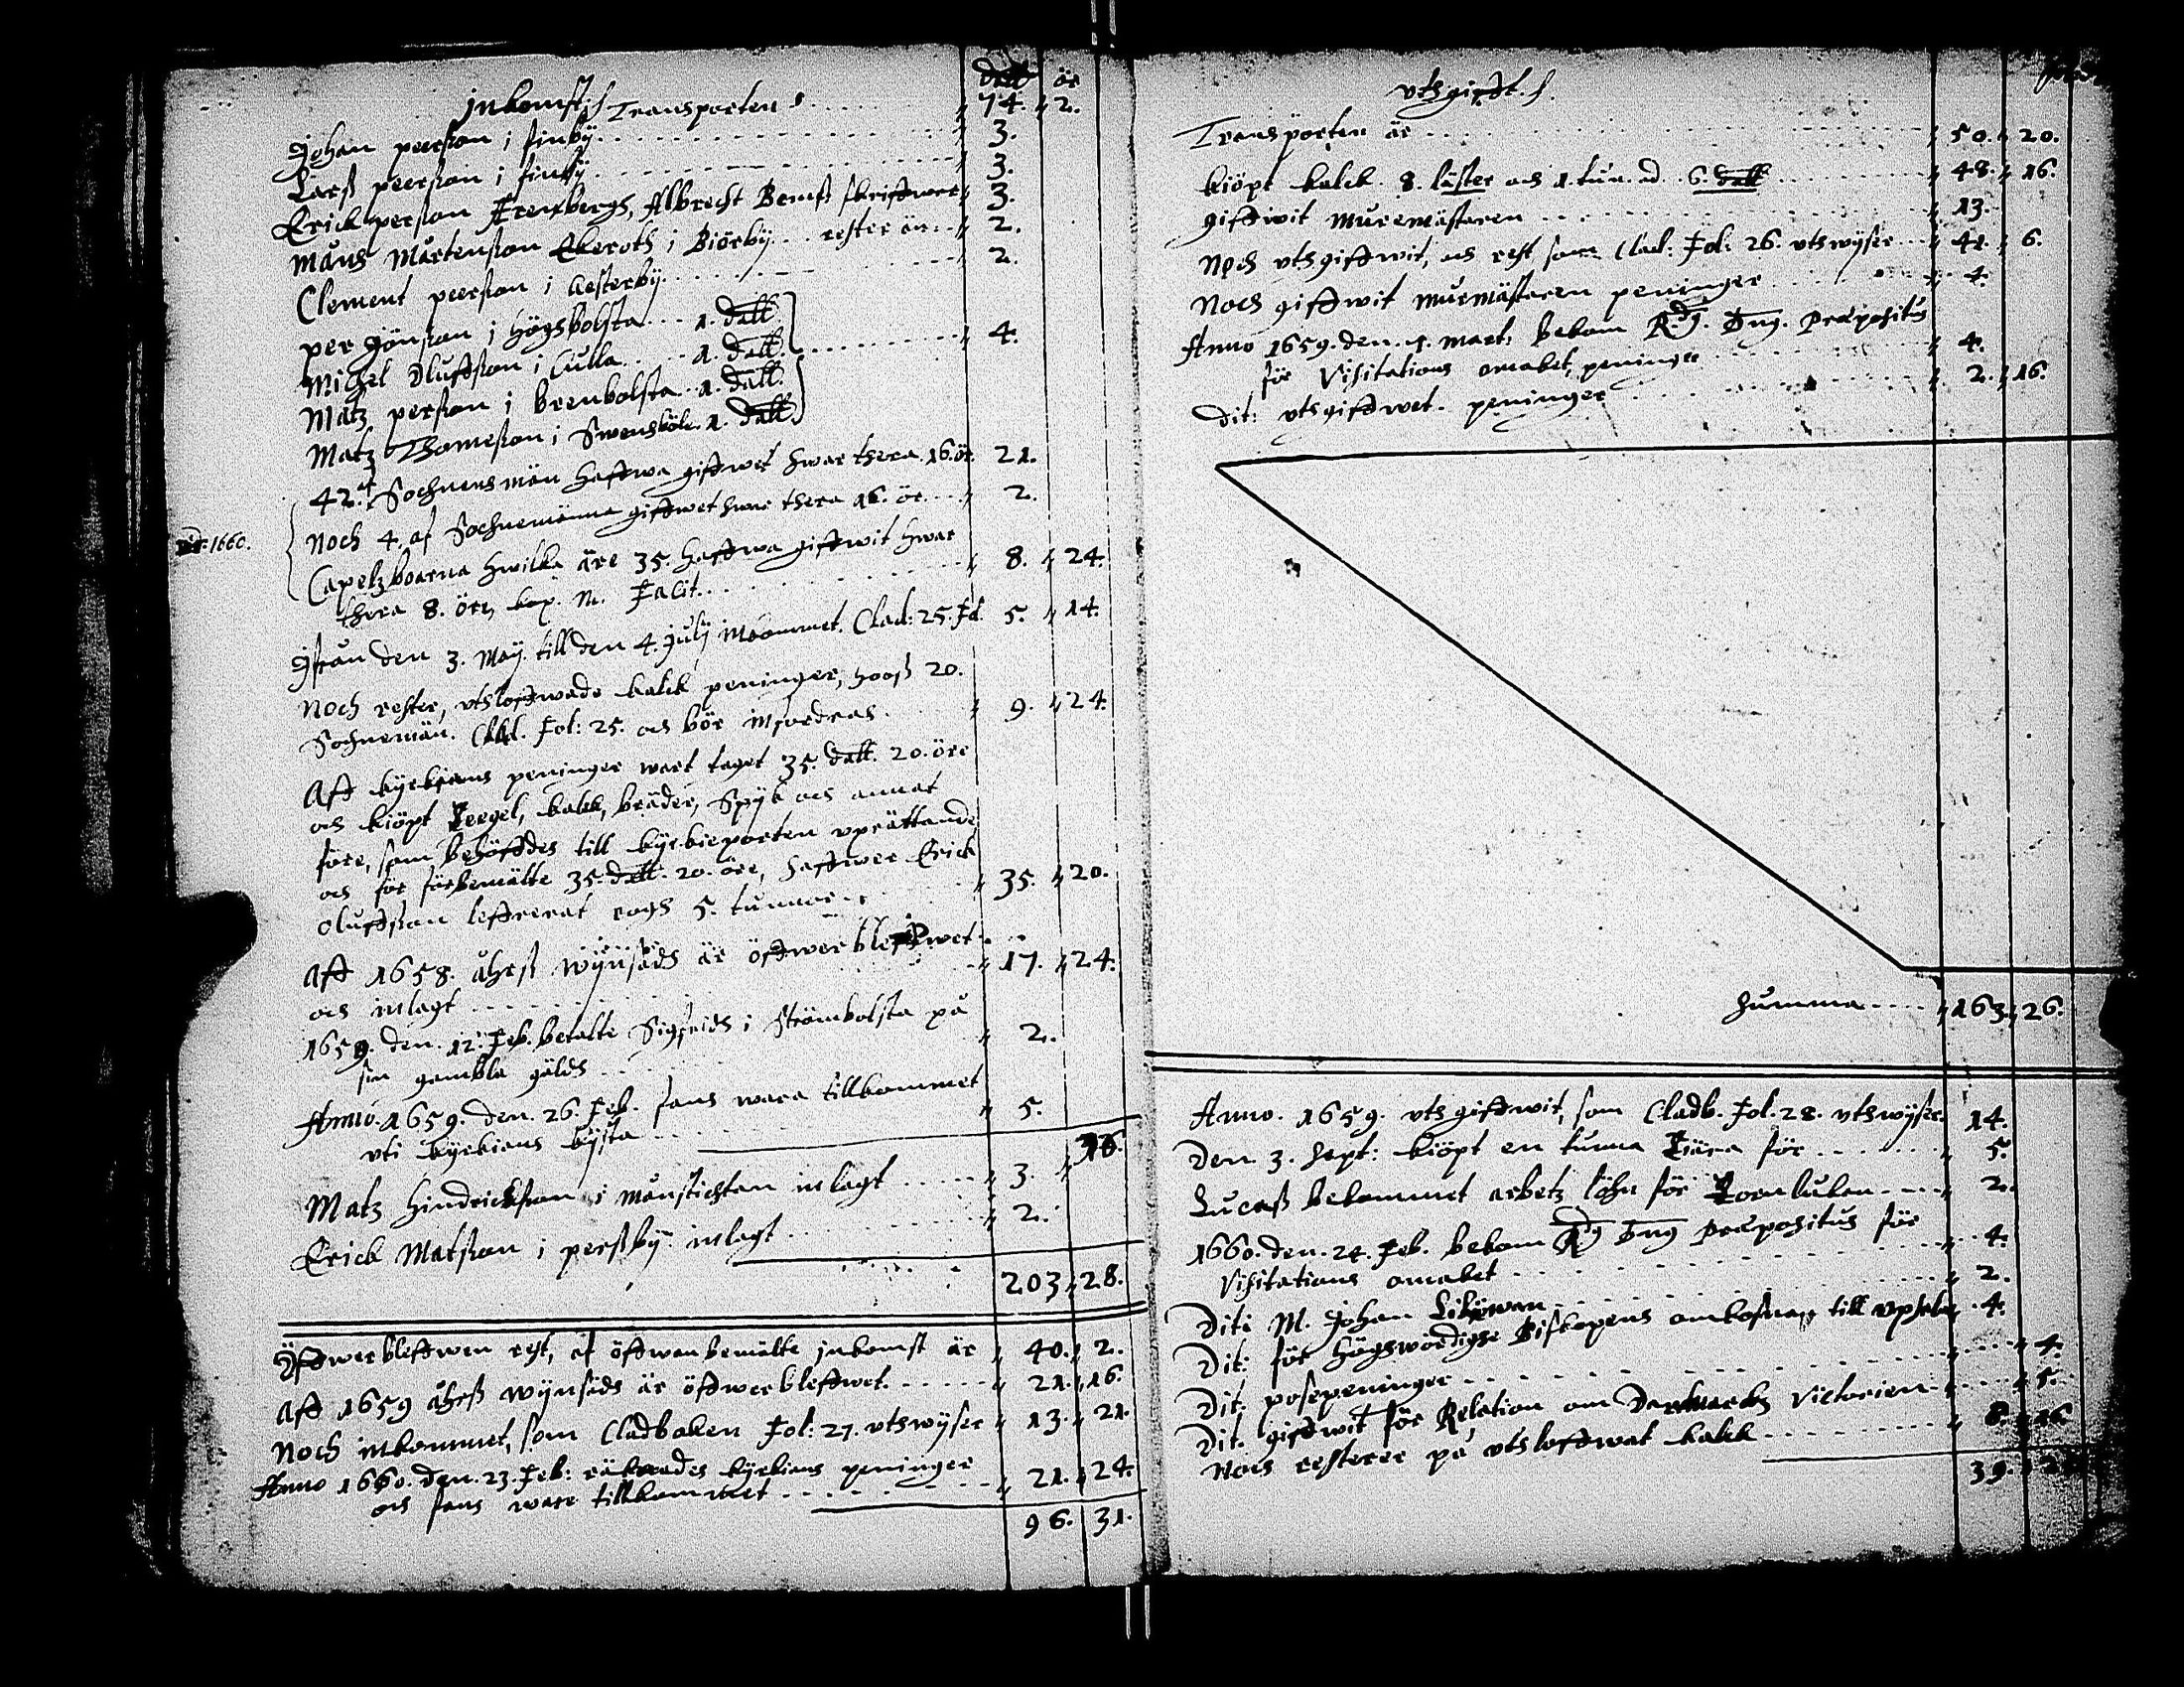 dall ör
Inkomst Transporten 74. 2.
Johan peerson i finby 3.
Larß peerson i finby 3.
Erick person Frensbergs, Albrecht Bemß skrifwer 3.
måns Mårtenson Ekeroth i Biörby rester än 2.
Clement peerson i Westerby 2.
per Jönson i Högsbolsta 1. dall
Michel Olufson i Culla 1. dall 4.
Matz person i brenbolsta 1. dall
Matz Thomeson i Swensböle 1. dall
42. Sochnens män hafwa gifwet hwar thera 16. ör 21.
Noch 4. af Sochnemänna gifwet hwar thera 16. ör 2.
1660.
Capelzboarna hwilka äre 35. hafwa gifwit hwar
thera 8. öre, kop. m. Facit 8. 24.
Ifrån den 3. Maij till den 4. Julij inkommet. Clad: 25. Fol. 5. 14.
Noch rester, uthlofwade kalck peninger, hooß 20.
Sochnemän. Clad. Fol: 25. och bör infordras 9. 24.
Aff kyrkians peninger wart taget 35. dall. 20. öre
och kiöpt Teegel, kalck, bräder, Spijk och annat
före, som behöfdes till kyrkieporten uprättande
och för förbemälte 35. dall. 20. öre, hafwer Erick
Olufson lefrerat rogh 5. tunnor 35. 20.
Aff 1658. åhrß wijnsäds är öfwerblefwet
och inlagt 17. 24.
1659. den. 12. Feb. betalte Sigfridh i Strömbolsta på
sin gambla gäld 2.
Anno. 1659. den. 26. Feb. fans wara tillkommet
uti kyrkians kijsta 5.
Matz Hindrickson i månstichten inlagt 3.
Erick Matson i perßby inlagt 2.
203. 28.
Öfwerblefwen rest, af öfwanbemälte inkomst är 40. 2.
Aff 1659 åhrß wijnsäds är öfwerblefwet. 21. 16.
Noch inkommet, som Cladboken Fol: 27. uthwijser 13. 21.
Anno 1660. den. 23. Feb: räknades kyrkians peninger
och fans ware tillkommet 21. 24.
96. 31.
uthgift.
Transporten är 50. 20.
kiöpt kalck. 8. läster och 1. tun. ad. 6. dall 48. 16.
gifwit Muremästaren 13.
Noch uthgifwit, och rest som Clad: Fol: 26. uthwijser 41. 6.
Noch gifwit muremästaren peninger 4.
Anno 1659. den. 1. mart. bekom R.dg. Dng. Præpositus
för Visitations omaket, peninger 4.
Dit: uthgifwet. peninger 2. 16.
Summa 163. 26.
Anno. 1659. uthgifwit, som Cladb. Fol. 28. uthwijser. 14.
Den. 3. Sept: kiöpt en tunna Tiära för 5.
Lucaß bekommet arbetz löhn för Tornluken 2.
1660. den. 24. Feb. bekom Rdg Dng Præpositus för
Visitations omaket 4.
Dit: M. Johan 2.
Dit: för Högwördighe Biskopens omkostnan till Upsala 4.
Dit: posepeninger 4.
Dit. gifwit för Relation om Danmarckz Victorien 5.
Noch resterer på uthlofwat kalck 8. 16.
39.